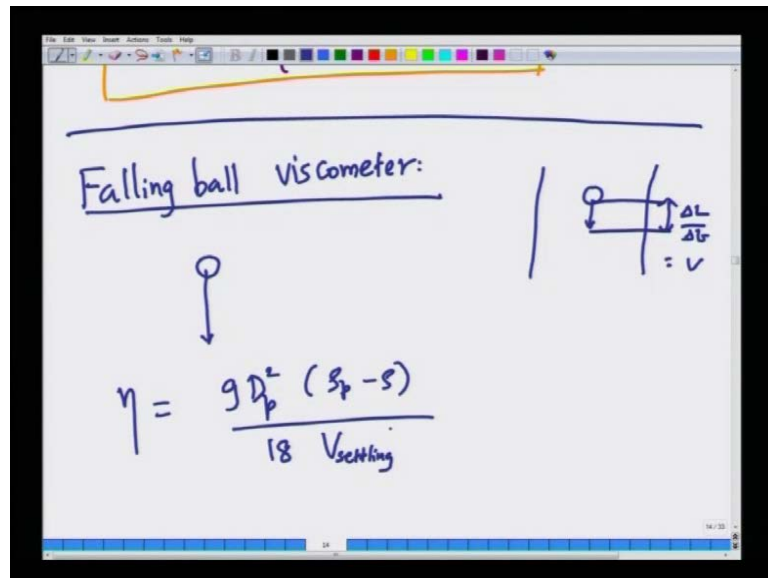 File Edit View Insert Actions Tools Help
Falling ball viscometer:
ΔL
Δt
= V
η = g D_p^2 (ρ_p - ρ)
18 V_settling
14/33
24